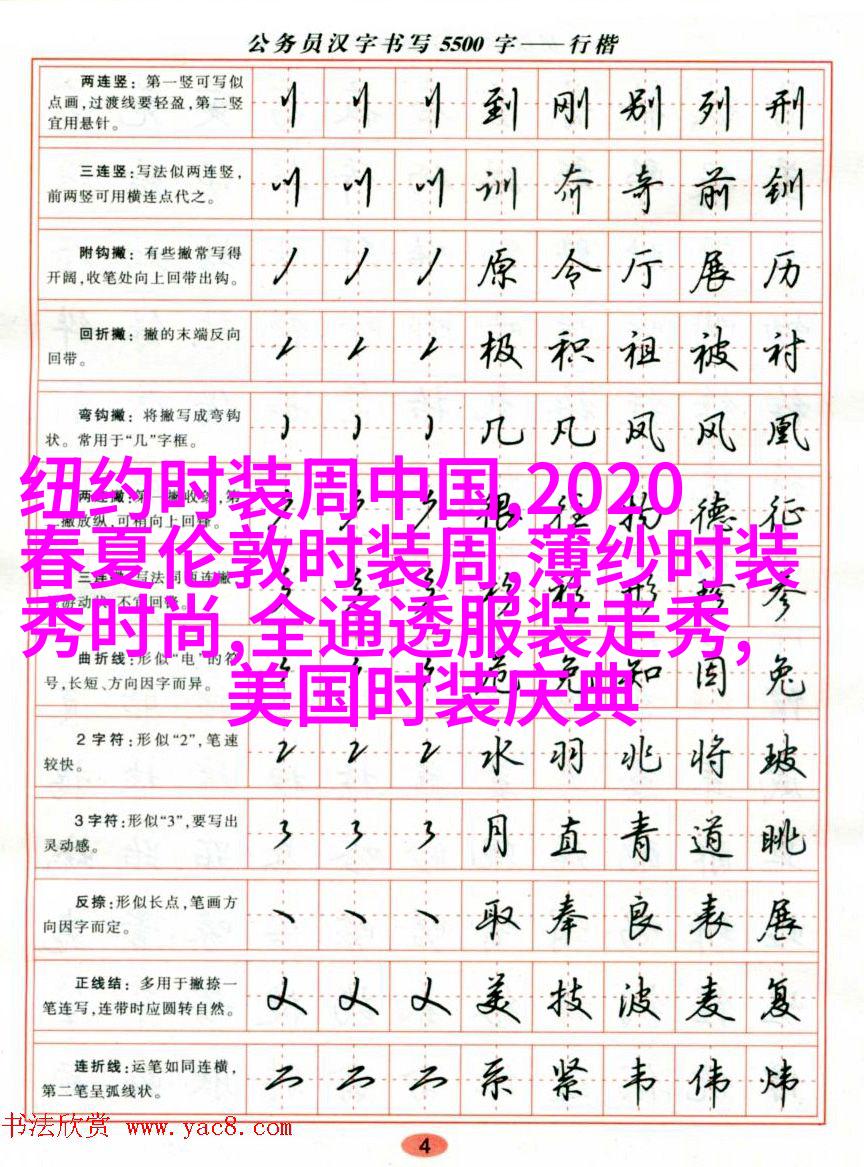 公务员汉字书写 5500 字——行楷
两连竖：第一竖可写似
点画,过渡线要轻盈,第二竖
宜用悬针。
到 刚 别 列 刑
三连竖:写法似两连竖,
前两竖可用横连点代之。
训 夼 奇 前 钏
附钩撇：有些撇常写得
开阔,收笔处向上回带出钩。
原 令 厅 展 历
回折撇：撇的末端反向
回带。
极 积 祖 被 衬
弯钩撇：将撇写成弯钩
状。常用于“几”字框。
几 凡 凤 风 凰
纽约时装周中国,2020
春夏伦敦时装周,薄纱时装
秀时尚,全通透服装走秀,
美国时装庆典
两连撇：第一撇收敛,第
二撇放纵,可稍向上回锋。
很 往 德 征
三连撇：写法同两连撇,
不宜回锋。
形 珍 参
曲折线：形似“电”的符
号,长短、方向因字而异。
危 免 知 因 兔
2字符：形似“2”,笔速
较快。
水 羽 兆 将 玻
3字符:形似“3”,要写出
灵动感。
月 直 青 道 眺
反捺:形似长点,笔画方
向因字而定。
取 奉 良 表 展
正线结：多用于撇捺一
笔连写,连带时应圆转自然。
美 技 波 麦 复
连折线:运笔如同连横,
第二笔呈弧线状。
系 紧 韦 伟 炜
书法欣赏 www.yac8.com
4